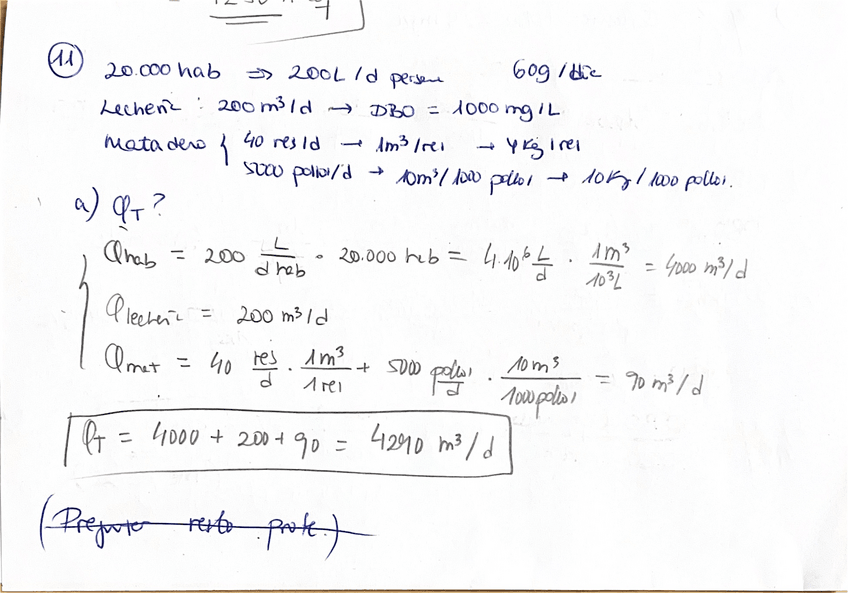 11
20.000 hab ⇒ 200L/d persona 60g/día
Lechería : 200 m³/d → DBO = 1000 mg/L
Matadero { 40 res/d → 1m³/res → 4Kg/res
5000 pollos/d → 10m³/1000 pollos → 10Kg/1000 pollos.
a) Q_T?
Q_hab = 200 L/d hab · 20.000 hab = 4·10⁶ L/d · 1m³/10³L = 4000 m³/d
Q_lechería = 200 m³/d
Q_mat = 40 res/d · 1m³/1 res + 5000 pollos/d · 10m³/1000 pollos = 90 m³/d
Q_T = 4000 + 200 + 90 = 4290 m³/d
(Preguntar resto profe.)